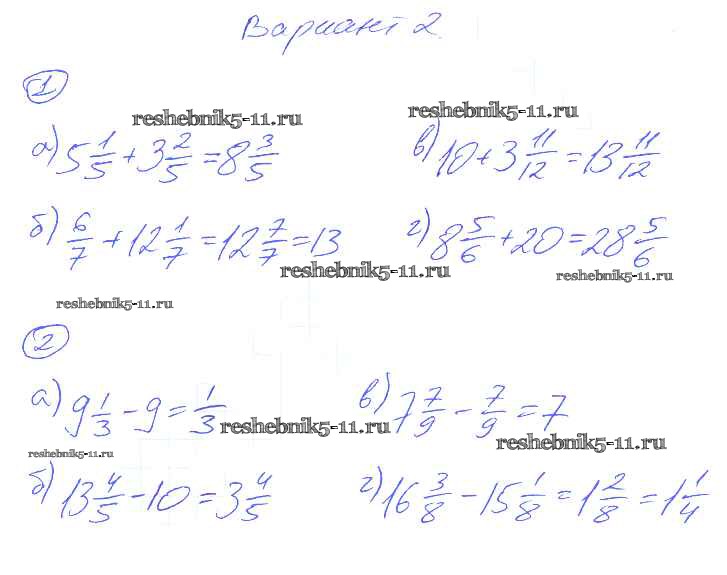 Вариант 2.
1
reshebnik5-11.ru reshebnik5-11.ru
а) 5 1/5 + 3 2/5 = 8 3/5 в) 10 + 3 11/12 = 13 11/12
б) 6/7 + 12 1/7 = 12 7/7 = 13 г) 8 5/6 + 20 = 28 5/6
reshebnik5-11.ru reshebnik5-11.ru
reshebnik5-11.ru
2
а) 9 1/3 - 9 = 1/3 в) 7 7/9 - 7/9 = 7
reshebnik5-11.ru reshebnik5-11.ru
reshebnik5-11.ru
б) 13 4/5 - 10 = 3 4/5 г) 16 3/8 - 15 1/8 = 1 2/8 = 1 1/4